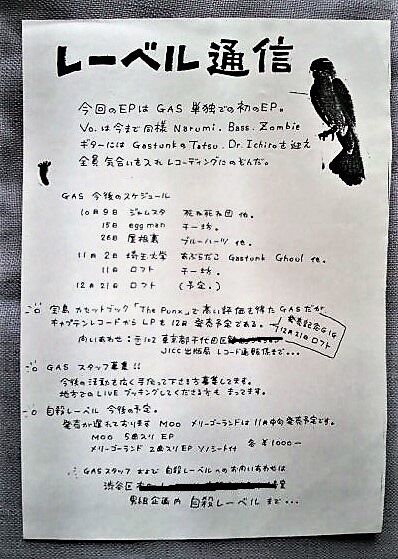 レーベル通信
今回のEPは GAS 単独での初のEP。
Vo.は今まで同様 Narumi. Bass. Zombie
ギターには GastunkのTatsu. Dr. Ichiroを迎え
全員 気合いを入れ レコーディングにのぞんだ。
GAS 今後のスケジュール
10月9日 ジャムスタ 死ね死ね団 他。
15日 eggman チー坊。
26日 屋根裏 ブルーハーツ 他。
11月2日 埼玉大学 あぶらだこ Gastunk Ghoul 他。
11日 ロフト チー坊。
12月21日 ロフト (予定。)
宝島 カセットブック「The Punx」で高い評価を得た GASだが
キャプテンレコードから LPも 12月 発売予定である。
発売記念GIG
12月21日ロフト
問いあわせ: 〒102 東京都千代田区
JICC出版局 レコード通販係まで...
GAS スタッフ募集!!
今後の活動を広く手伝って下さる方募集してます。
地方でのLIVE ブッキングしてくださる方も まってます。
自殺レーベル 今後の予定。
発売が遅れております MOO メリーゴーランドは 11月中旬発売予定です。
MOO 5曲入り EP
メリーゴーランド 2曲入りEP ソノシート付 各 ¥1000-
GASスタッフ および 自殺レーベルへのお問いあわせは
渋谷区
男組企画内 自殺レーベル まで...